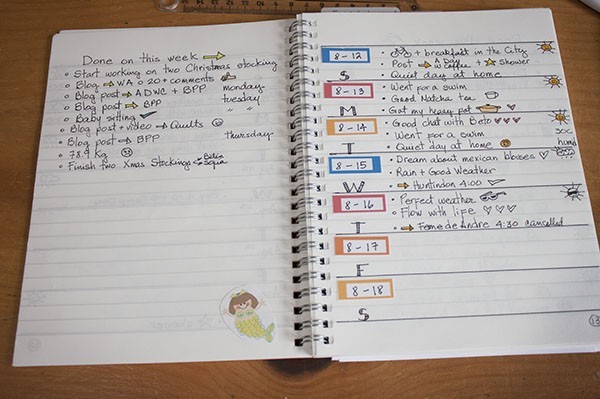 Done on this week
Start working on two Christmas stocking
Blog WA o 20 + comments
Blog post ADWC + BPP monday
Blog post BPP tuesday
Baby sitting " "
Blog post + video Quilts
Blog post BPP thursday
78.9 Kg
Finish two Xmas Stockings
8-12
S
+ breakfast in the City
Post A Day w Coffee + Shower
Quiet day at home
8-13
M
Went for a swim
Good Matcha tea
Got my heavy pot
8-14
T
Good chat with Beto
Went for a swim
Quiet day at home
8-15
W
Dream about mexican blouses
Rain + Good Weather
Huntindon 4:00
8-16
T
Perfect weather
Flow with life
Fome de Andre 4:30 cancelled
8-17
F
8-18
S
13